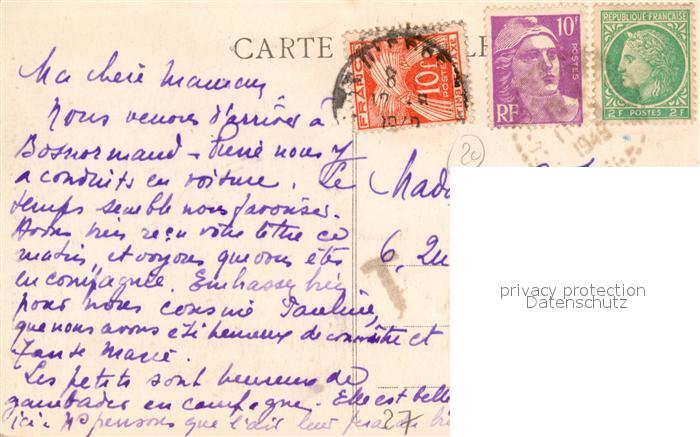 CARTE
Ma chère Maman,
Nous venons d'arriver à
Bosnormand - René nous y
a conduits en voiture. Le
temps semble nous favoriser.
Avons bien reçu votre lettre ce
matin, et voyons que vous êtes
en compagnie. Embrassez bien
pour nous cousine Pauline,
que nous avons été heureux de connaître et
Tante Marie.
Les petits sont heureux de
gambader en campagne. Elle est belle
ici. Ns pensons que l'air leur fera du
FRANCE
10F
TIMBRE TAXE
8
10F
POSTES
RF
REPUBLIQUE FRANÇAISE
2F POSTES 2F
1948
20
Mad
6, Qu
T
27
privacy protection
Datenschutz